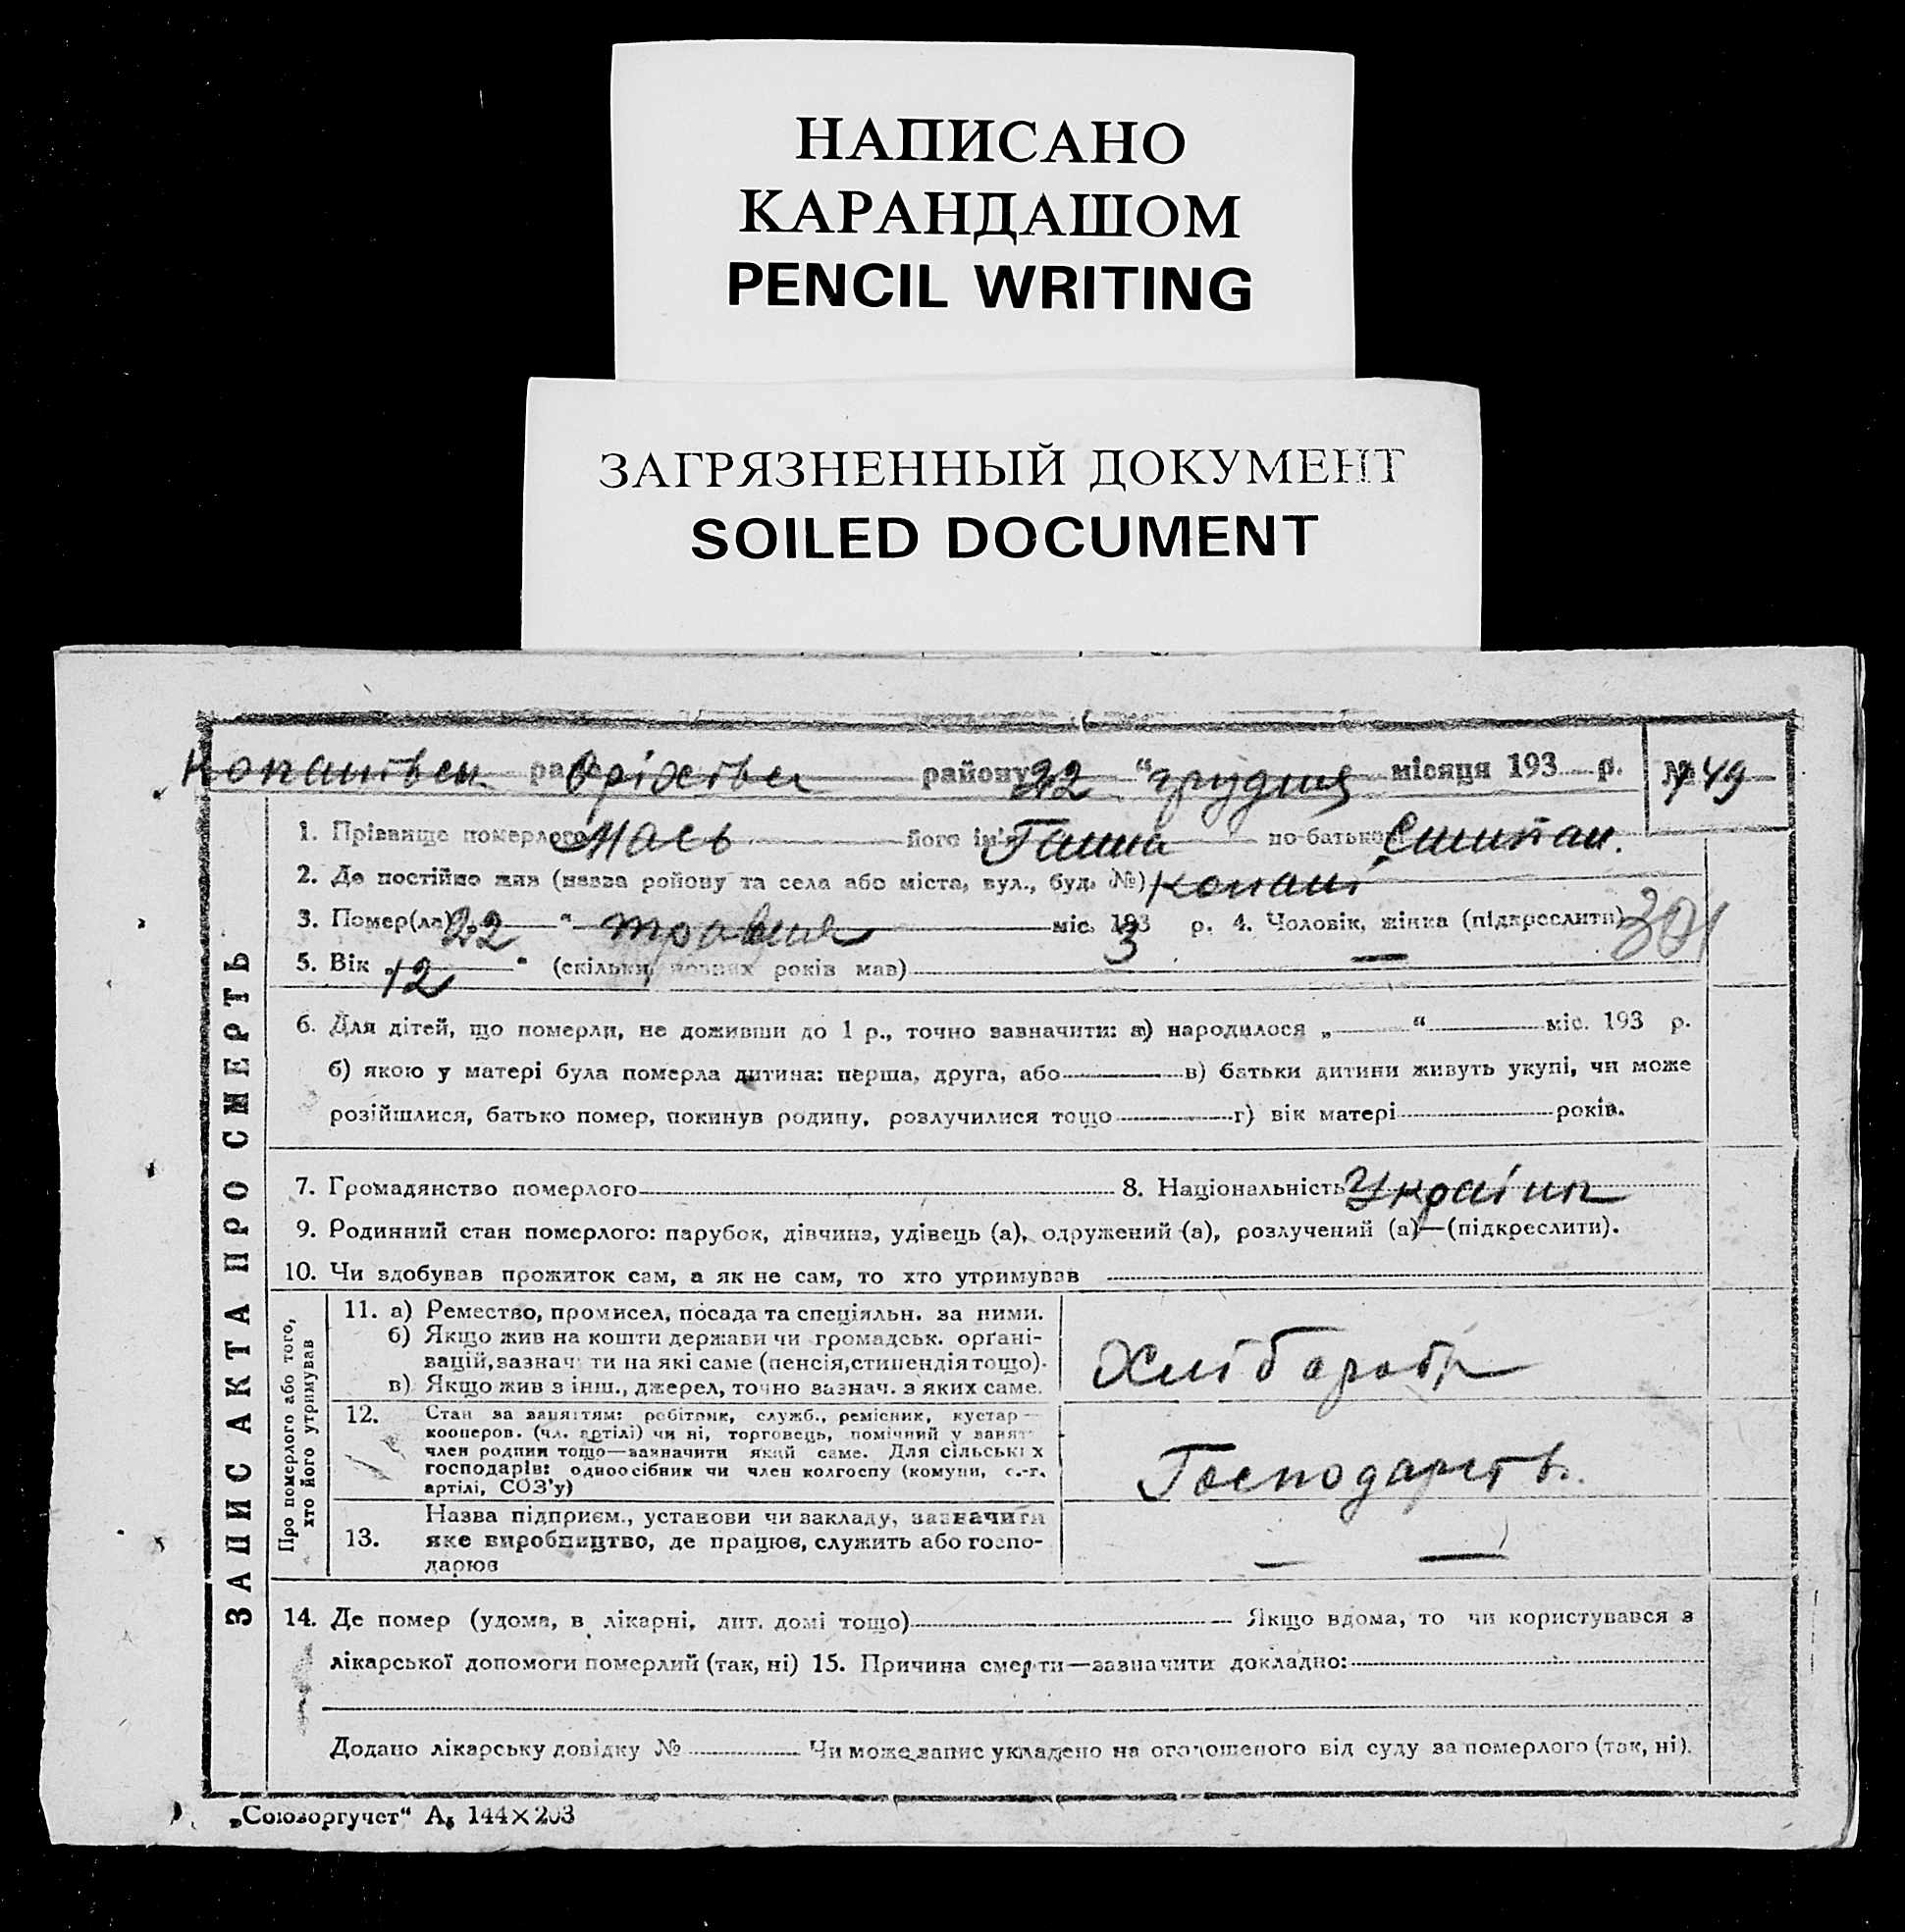 НАПИСАНО
КАРАНДАШОМ
PENCIL WRITING
ЗАГРЯЗНЕННЫЙ ДОКУМЕНТ
SOILED DOCUMENT
района 22 “ грудня місяця 193 р. № 49
1. Прізвище померлого Мась його ім'я Ганна по-батькові
2. Де постійно жив (назва ройону та села або міста, вул., буд. №) Копані
3. Помер(ла) 22 “ травня міс. 193 3 р. 4. Чоловік, жінка (підкреслити) 301
5. Вік „12“ (скільки повних років мав)
6. Для дітей, що померли, не доживши до 1 р., точно зазначити: а) народилося „ “ міс. 193 р.
б) якою у матері була померла дитина: перша, друга, або в) батьки дитини живуть укупі, чи може
розійшлися, батько помер, покинув родину, розлучилися тощо г) вік матері років.
7. Громадянство померлого 8. Національність Україн
9. Родинний стан померлого: парубок, дівчина, удівець (а), одружений (а), розлучений (а)—(підкреслити).
10. Чи здобував прожиток сам, а як не сам, то хто утримував
ЗАПИС АКТА ПРО СМЕРТЬ
Про померлого або того,
хто його утримував
11. а) Ремество, промисел, посада та спеціяльн. за ними.
б) Якщо жив на кошти держави чи громадськ. орґані-
зацій, зазначити на які саме (пенсія, стипендія тощо).
в) Якщо жив з інш., джерел, точно зазнач. з яких саме.
Хлібороб
12. Стан за заняттям: робітник, служб., ремісник, кустар—
кооперов. (чл. артілі) чи ні, торговець, помічний у занят.
член родини тощо—зазначити який саме. Для сільських
господарів: одноосібник чи член колгоспу (комуни, с.-г.
артілі, СОЗ'у)
Господарств.
13. Назва підприєм., установи чи закладу, зазначити
яке виробництво, де працює, служить або госпо-
дарює
14. Де помер (удома, в лікарні, дит. домі тощо) Якщо вдома, то чи користувався з
лікарської допомоги померлий (так, ні) 15. Причина смерти—зазначити докладно:
Додано лікарську довідку № Чи може запис укладено на оголошеного від суду за померлого (так, ні).
„Союзоргучет“ А5 144×203